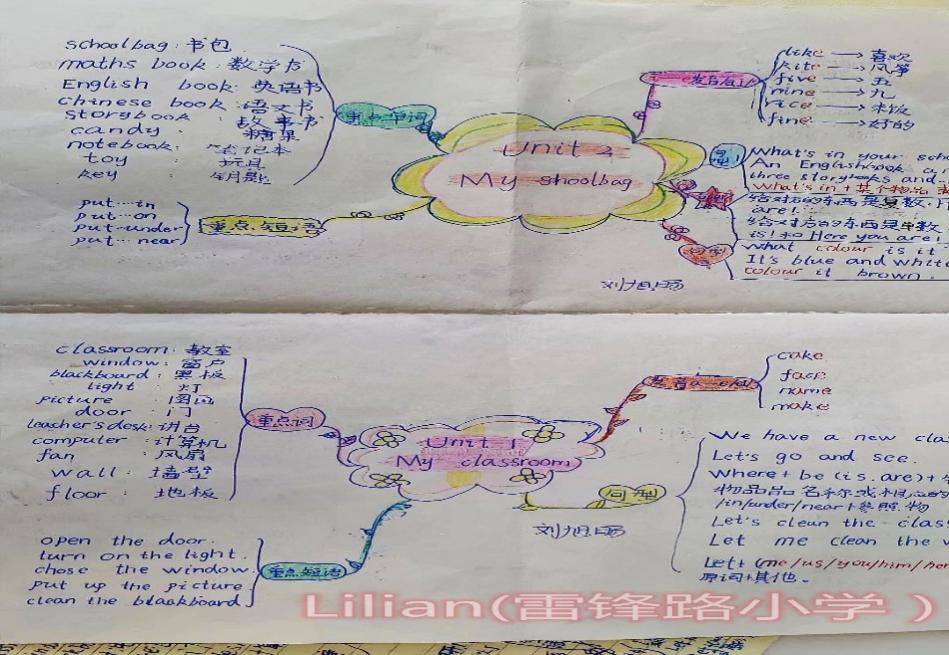 schoolbag: 书包
maths book: 数学书
English book: 英语书
chinese book: 语文书
storybook : 故事书
candy : 糖果
notebook: 笔记本
toy : 玩具
key : 钥匙
重点单词
put...in
put...on
put...under
put...near
重点短语
Unit 2
My shoolbag
like → 喜欢
kite → 风筝
five → 五
nine → 九
rice → 米饭
fine → 好的
What's in your
An English book
three storybooks and...
What's in + 某个物品
给对方的东西是复数,
are!
给对方的东西是单数
is! 和 Here you are!
what colour is it
It's blue and white
colour it brown.
句型
刘旭旸
classroom: 教室
window: 窗户
blackboard: 黑板
light : 灯
picture : 图画
door : 门
teacher's desk: 讲台
computer : 计算机
fan : 风扇
wall : 墙壁
floor : 地板
重点词
open the door.
turn on the light.
chose the window.
put up the picture.
clean the blaakboard
重点短语
Unit 1
My classroom
cake
face
name
make
句型
We have a new
Let's go and see.
Where + be (is.are) +
物品名称或相应的
/in/under/near+参照物
Let's clean the
Let me clean the
Let + (me/us/you/him/
原词+其他。
刘旭旸
Lilian(雷锋路小学 )